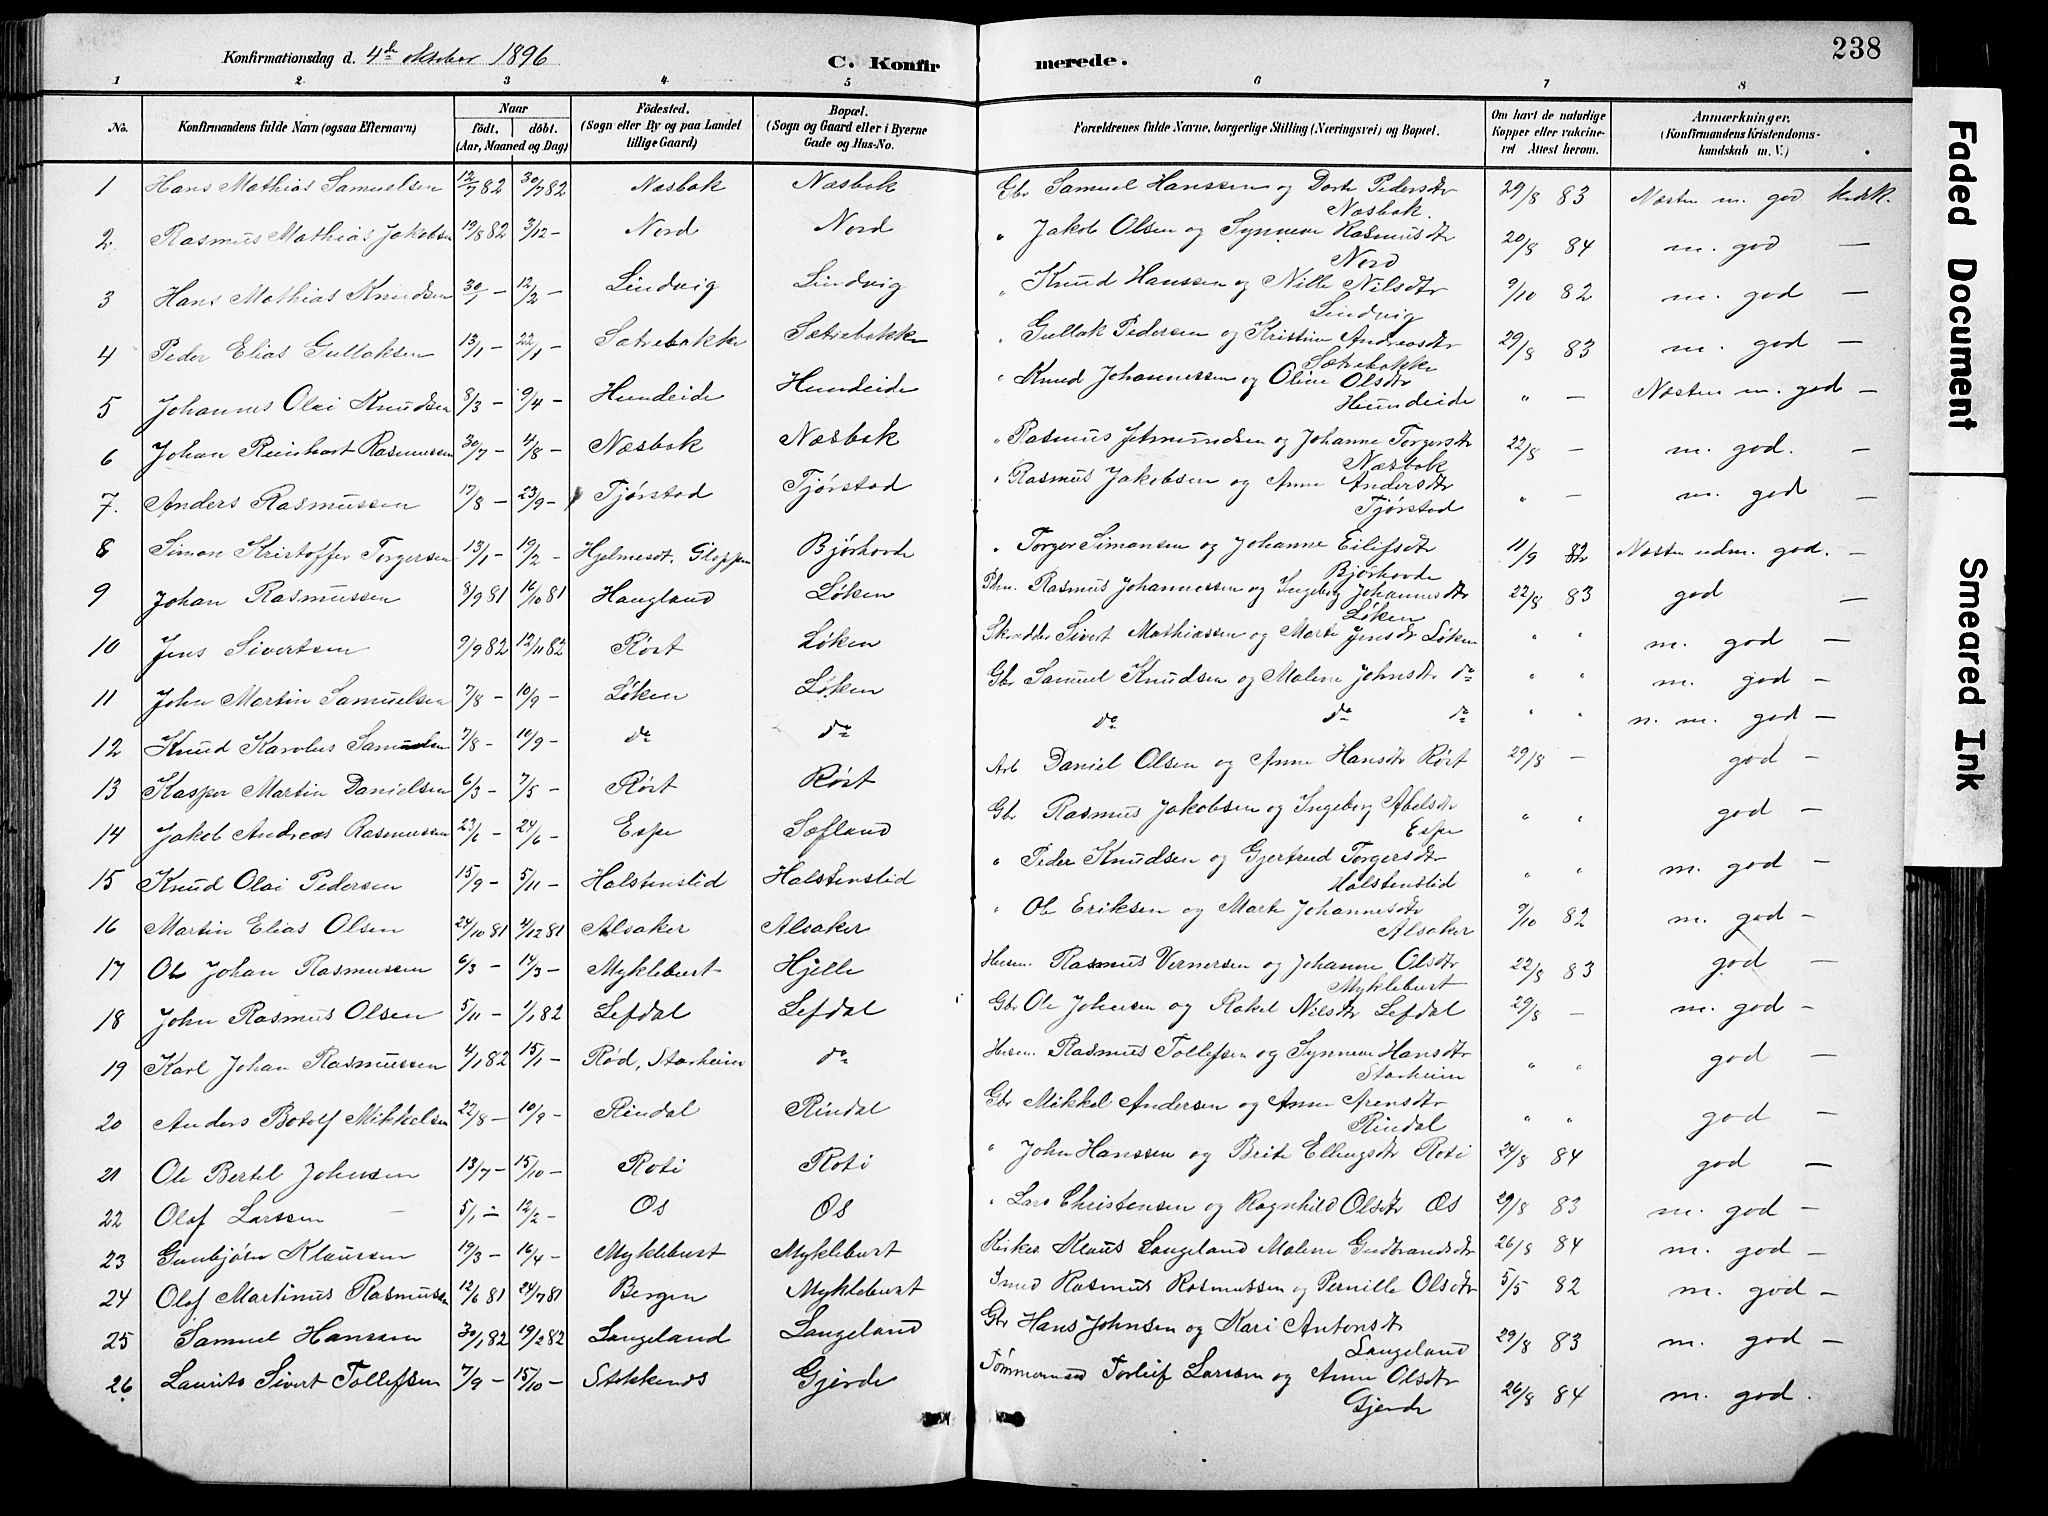 Konfirmationsdag d. 4de oktober 1896 C. Konfirmerede. 238
1 2 3 4 5 6 7 8
No. Konfirmandens fulde Navn (ogsaa Efternavn) Naar födt. döbt. (Aar, Maaned og Dag) Födested. (Sogn eller By og paa Landet tillige Gaard) Bopæl. (Sogn og Gaard eller i Byerne Gade og Hus-No. Forældrenes fulde Navne, borgerlige Stilling (Næringsvei) og Bopæl. Om havt de naturlige Kopper eller vakcineret Attest herom. Anmærkninger. (Konfirmandens Kristendomskundskab m. V.)
1 Hans Mathias Samuelsen 12/7 82 30/7 82 Næsbak Næsbok Gbr Samuel Hanssen og Dorte Pedersdtr Næsbak. 29/8 83 Næsten m. god krdsk.
2 Rasmus Mathias Jakobsen 19/8 82 3/12 – Nord Nord " Jakob Olsen og Synneve Rasmusdtr Nord 20/8 84 m. god –
3 Hans Mathias Knudsen 30/1 – 12/2 – Lindvig Lindvig " Knud Hanssen og Nille Nilsdtr Lindvig 9/10 82 m. god –
4 Peder Elias Gullaksen 13/1 – 22/1 – Sætrebakke Sætrebakke " Gullak Pedersen og Kristine Andreasdtr Sætrebakke 29/8 83 m. god –
5 Johannes Olai Knudsen 8/3 – 9/4 – Hundeide Hundeide " Knud Johannessen og Oline Olsdtr Hundeide " – Næsten m. god –
6 Johan Reinhart Rasmussen 30/7 – 4/8 – Næsbak Næsbak " Rasmus Jetmundsen og Johanne Torgersdtr Næsbak 22/8 – m. god. –
7. Anders Rasmussen 17/8 – 23/9 – Tjørstad Tjørstad " Rasmus Jakobsen og Anne Andersdtr Tjørstad " – m. god –
8 Simon Kristoffer Torgersen 13/1 – 19/2 – Hjelmesæt, Gloppen Bjørhovde " Torger Simonsen og Johanne Eilifsdtr Bjørhovde 11/9 82 Næsten udm. god. –
9 Johan Rasmussen 8/9 81 16/10 81 Haugland Løken Rasmus Johannessen og Ingeborg Johannesdtr Løken 22/8 83 god –
10 Jens Sivertsen 9/9 82 12/11 82 Røst Løken Skrædder Sivert Mathiassen og Marte Jensdtr Løken " " m. god –
11 John Martin Samuelsen 7/8 – 10/9 – Løken Løken Gbr Samuel Knudsen og Malene Johnsdtr do " " m. god –
12 Knud Karolus Samuelsen 7/8 – 10/9 – do do do do do " " n. m. god –
13 Kasper Martin Danielsen 6/3 – 7/5 – Røst Røst Arb Daniel Olsen og Anne Hansdtr Røst 29/8 – god –
14 Jakob Andreas Rasmussen 23/6 – 24/6 – Espe Sæfland Gbr Rasmus Jakobsen og Ingeborg Abelsdtr Espe " " god –
15 Knud Olai Pedersen 15/9 – 5/11 – Holstenslid Holstenslid " Peder Knudsen og Gjertrud Torgersdtr Holstenslid " " m. god –
16 Martin Elias Olsen 24/10 81 4/12 81 Alsaker Alsaker " Ole Eriksen og Marte Johannesdtr Alsaker 9/10 82 m. god –
17 Ole Johan Rasmussen 6/3 – 14/3 – Myklebust Hjelle Husm. Rasmus Vernersen og Johanne Olsdtr Myklebust 22/8 83 god –
18 John Rasmus Olsen 5/11 – 1/1 82 Lefdal Lefdal Gbr Ole Johnsen og Rakel Nilsdtr Lefdal 29/8 – m. god –
19 Karl Johan Rasmussen 4/1 82 15/1 – Rød, Starheim do Husm. Rasmus Tollefsen og Synneve Hansdtr Starheim " " god –
20 Anders Botolf Mikkelsen 22/8 – 10/9 – Rindal Rindal Gbr Mikkel Andersen og Anne Arensdtr Rindal " " god –
21 Ole Bertil Johnsen 13/7 – 15/10 – Roti Roti " John Hanssen og Brite Ellingsdtr Roti 24/8 84 god –
22 Olaf Larssen 5/1 – 12/2 – Os Os " Lars Christensen og Ragnhild Olsdtr Os 29/8 83 m. god –
23 Gunbjørn Klaussen 19/3 – 16/4 – Myklebust Myklebust Klaus Langeland Malene Gudbrandsdtr 26/8 84 m. god –
24 Olaf Martinus Rasmussen 12/6 81 24/7 81 Bergen Myklebust Smed Rasmus Rasmussen og Pernille Olsdtr 5/5 82 m. god –
25 Samuel Hanssen 30/1 82 19/2 82 Langeland Langeland Gbr Hans Johnsen og Kari Antonsdtr Langeland 29/8 83 m. god –
26 Laurits Sivert Tollefsen 7/9 – 15/10 – Stokkenes Gjerde Tømmermand Torleif Larssen og Anne Olsdtr Gjerde 26/8 84 m. god.
Faded Document
Smeared Ink